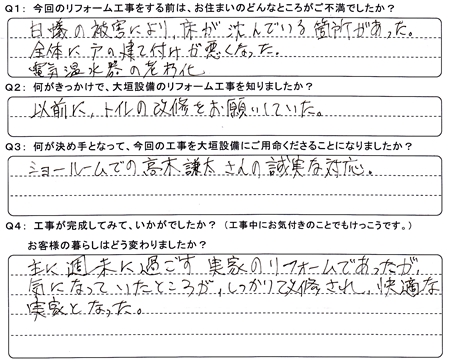 Q1：今回のリフォーム工事をする前は、お住まいのどんなところがご不満でしたか？
白蟻の被害により、床が沈んでいる箇所があった。
全体に戸の建て付けが悪くなった。
電気温水器の老朽化
Q2：何がきっかけで、大垣設備のリフォーム工事を知りましたか？
以前に、トイレの改修をお願いしていた。
Q3：何が決め手となって、今回の工事を大垣設備にご用命くださることになりましたか？
ショールームでの高木謙太さんの誠実な対応。
Q4：工事が完成してみて、いかがでしたか？（工事中にお気付きのことでもけっこうです。）
お客様の暮らしはどう変わりましたか？
主に週末に過ごす実家のリフォームであったが、
気になっていたところが、しっかり改修され、快適な
実家となった。